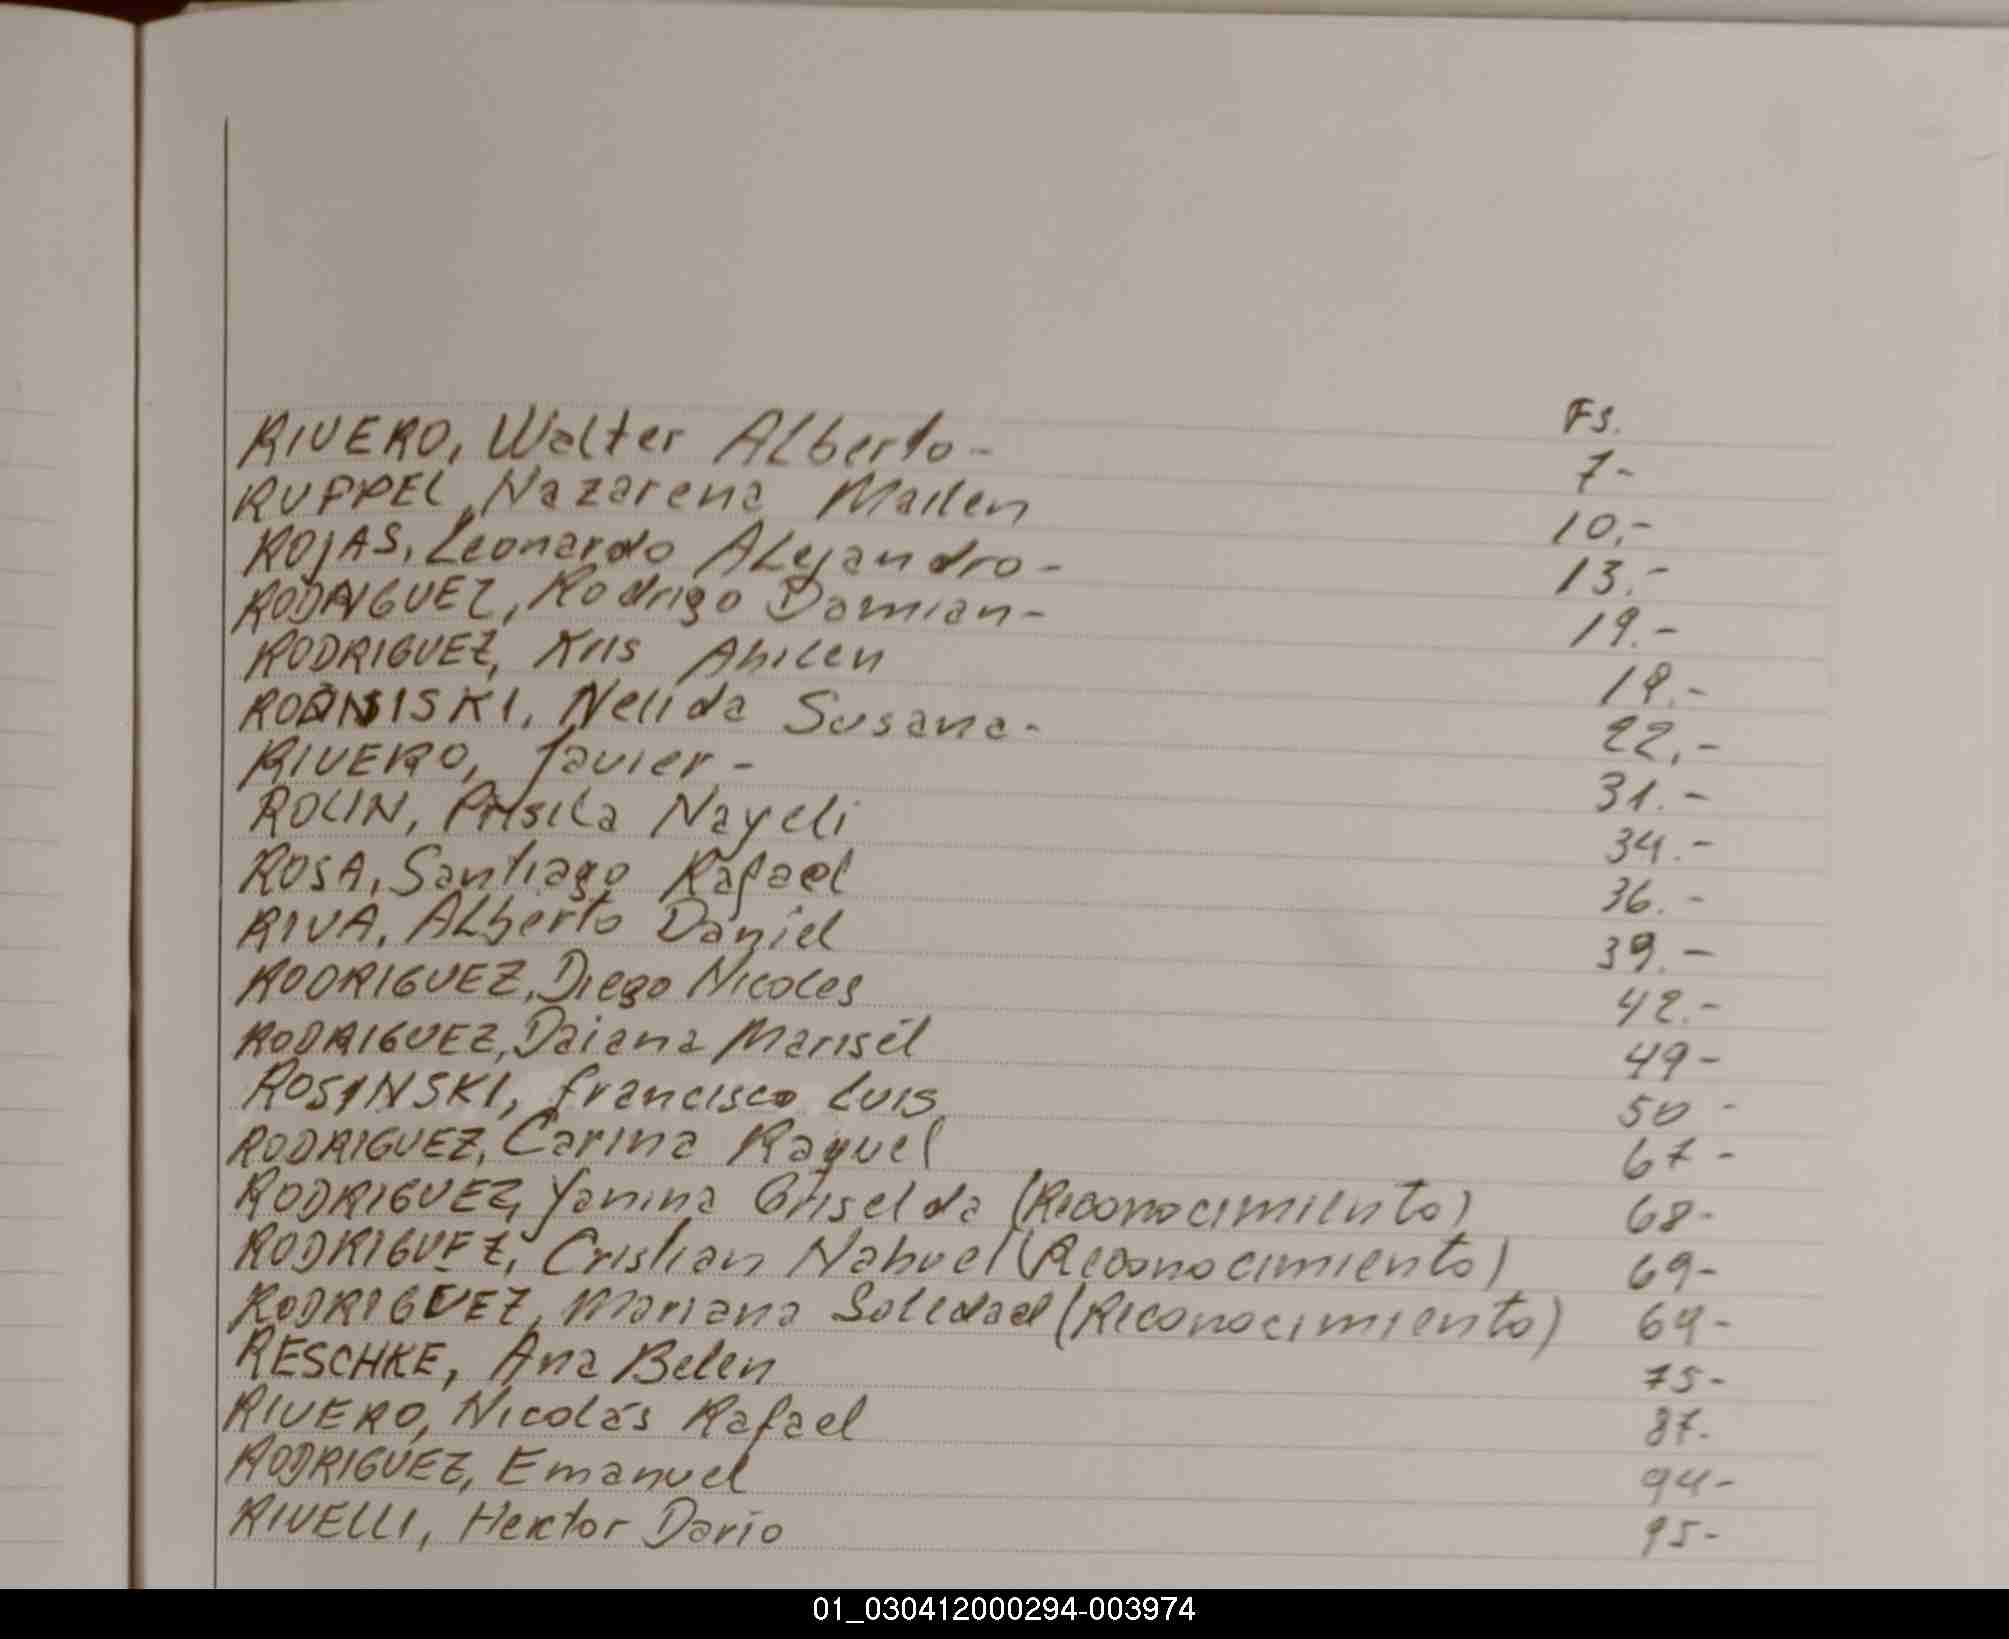 Fs.
RIVERO, Walter Alberto - 7-
RUPPEL, Nazarena Mailen 10,-
ROJAS, Leonardo Alejandro - 13.-
RODRIGUEZ, Rodrigo Damian - 19.-
RODRIGUEZ, Kris Ahilen 19.-
Nelida Susana - 22,-
RIVERO, Javier - 31.-
ROLIN, Prisila Nayeli 34.-
ROSA, Santiago Rafael 36.-
RIVA, Alberto Daniel 39.-
RODRIGUEZ, Diego Nicolas 42.-
RODRIGUEZ, Daiana Marisél 49-
ROSINSKI, Francisco Luis 50-
RODRIGUEZ, Carina Raquel 67-
RODRIGUEZ, Yanina Griselda (Reconocimiento) 68-
RODRIGUEZ, Cristian Nahuel (Reconocimiento) 69-
RODRIGUEZ, Mariana Soledad (Reconocimiento) 69-
RESCHKE, Ana Belen 75-
RIVERO, Nicolás Rafael 87.
RODRIGUEZ, Emanuel 94-
RIVELLI, Hector Dario 95-
01_030412000294-003974